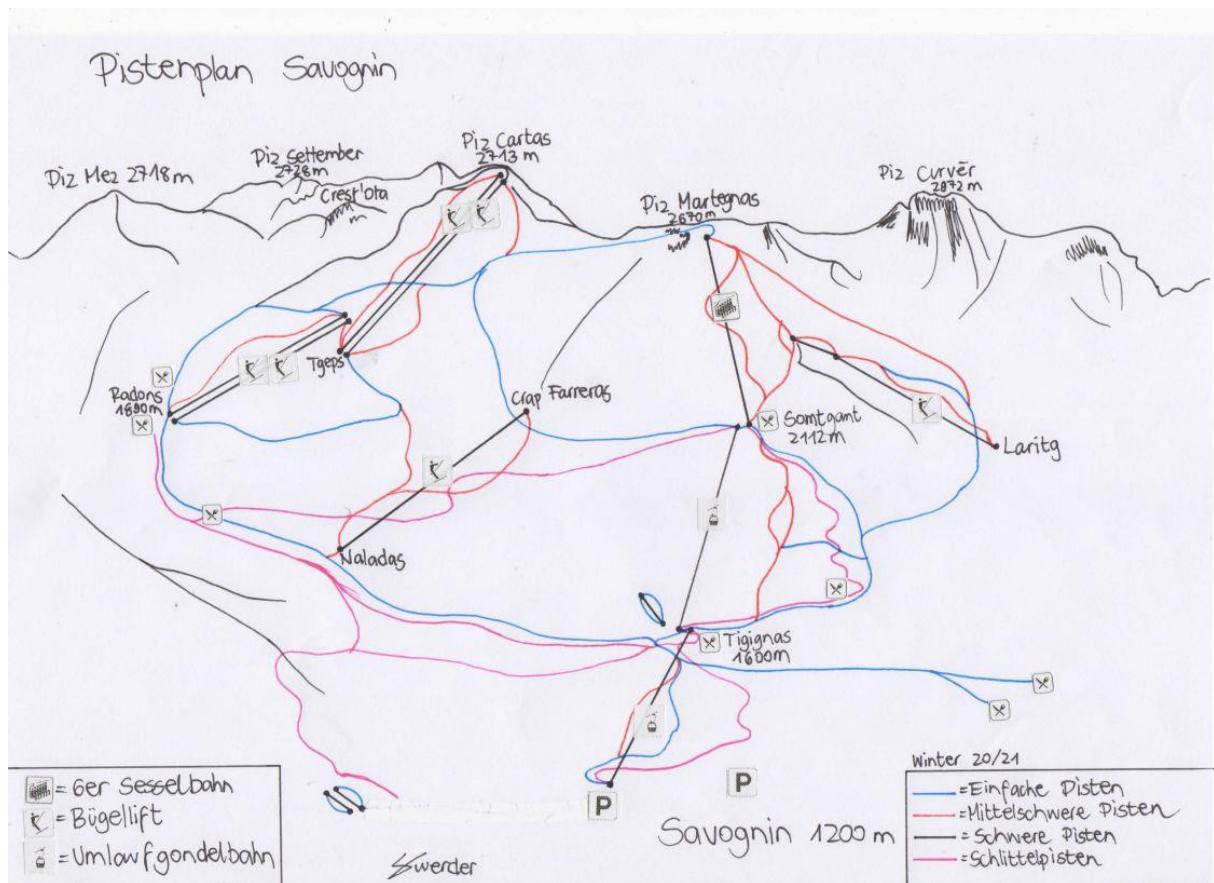 Pistenplan Savognin
Piz Mez 2718m
Piz Settember
2728m
Crest'Ota
Piz Cartas
2713 m
Piz Martegnas
2670m
Piz Curvér
2872m
Radons
1890m
Tgeps
Crap Farreras
Somtgant
2112m
Laritg
Naladas
Tigignas
1600m
P
P
Savognin 1200 m
= 6er Sesselbahn
= Bügellift
= Umlaufgondelbahn
Swerder
Winter 20/21
= Einfache Pisten
= Mittelschwere Pisten
= Schwere Pisten
= Schlittelpisten